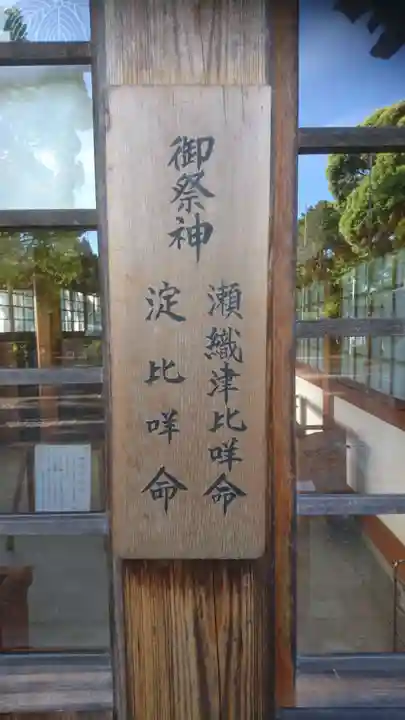 御祭神
瀬織津比咩命
淀比咩命